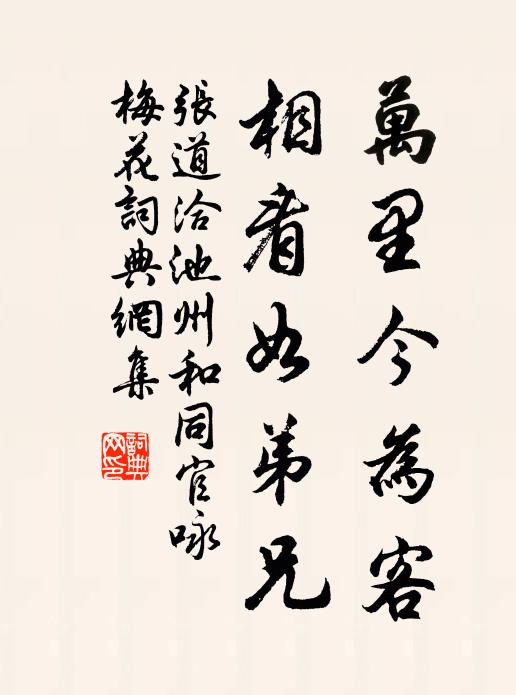 萬里今為客
相看如弟兄
張道洽池州和同官咏
梅花詞典網集
詞典網印